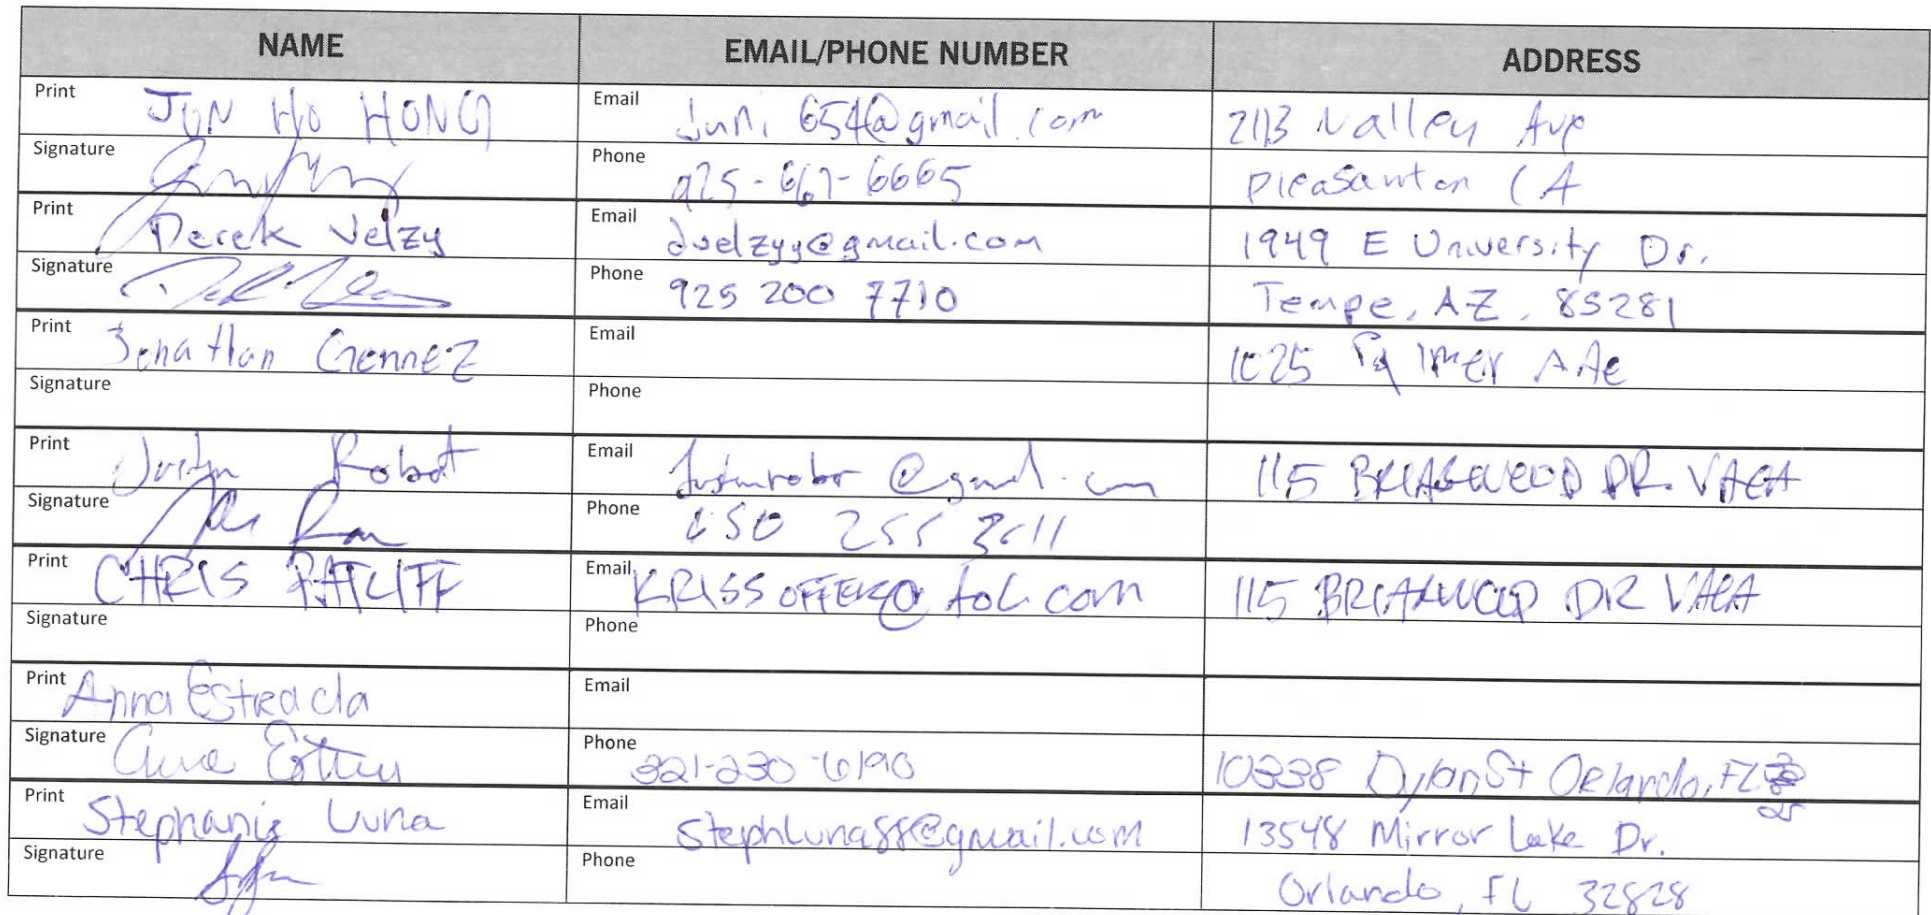 NAME EMAIL/PHONE NUMBER ADDRESS
Print JUN HO HONG Email Juni654@gmail.com 2113 Valley Ave
Signature Phone 925-667-6665 Pleasanton CA
Print Derek Velzy Email dvelzyy@gmail.com 1949 E University Dr.
Signature Phone 925 200 7710 Tempe, AZ, 85281
Print Jonathan Email 1025
Signature Phone
Print Justin Robot Email 115 BRIARWOOD DR. VACA
Signature Phone 650 255
Print CHRIS RATLIFF Email KRISSOFFER@AOL.COM 115 BRIARWOOD DR VACA
Signature Phone
Print Anna Estrada Email
Signature Phone 321-230-6190 10338 Dylan St Orlando, FL
Print Stephanie Luna Email Stephluna88@gmail.com 13548 Mirror Lake Dr.
Signature Phone Orlando, FL 32828